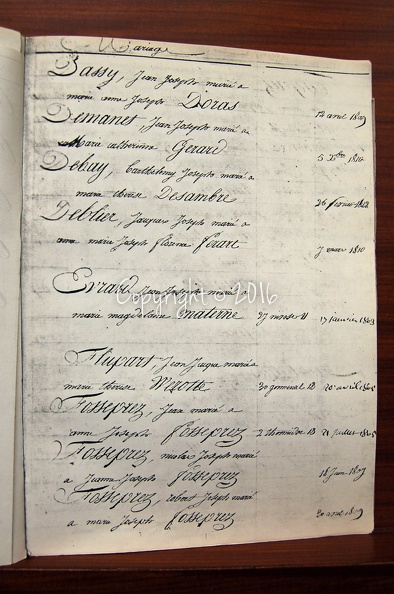 Mariage
Dassy, Jean Joseph marié a
marie anne Joseph Doras 12 avril 1809
Demanet Jean Joseph marié a
Marie catherinne Gerard 5 Xbre 1810
Debay, Barthelemy Joseph marié a
marie therese Desambre 26 fevrier
Deblier, Jacques Joseph marié a
anne marie Joseph florine 1810
Evrard Jean Joseph marié a
marie magdelaine materne 27 11 17 janvier
Flupart Jean Jacque marié a
marie therese Wirotte 30 germinal 13 20 avril 1805
Fosseprez, Jean marié a
anne Joseph Fosseprez 2 thermidor 13 21 juillet 1805
Fosseprez, nicolas Joseph marié
a Jeanne Joseph Fosseprez 18 Juin
Fosseprez, robert Joseph marié
a marie Joseph Fosseprez 20 avril 1809
Copyright © 2016